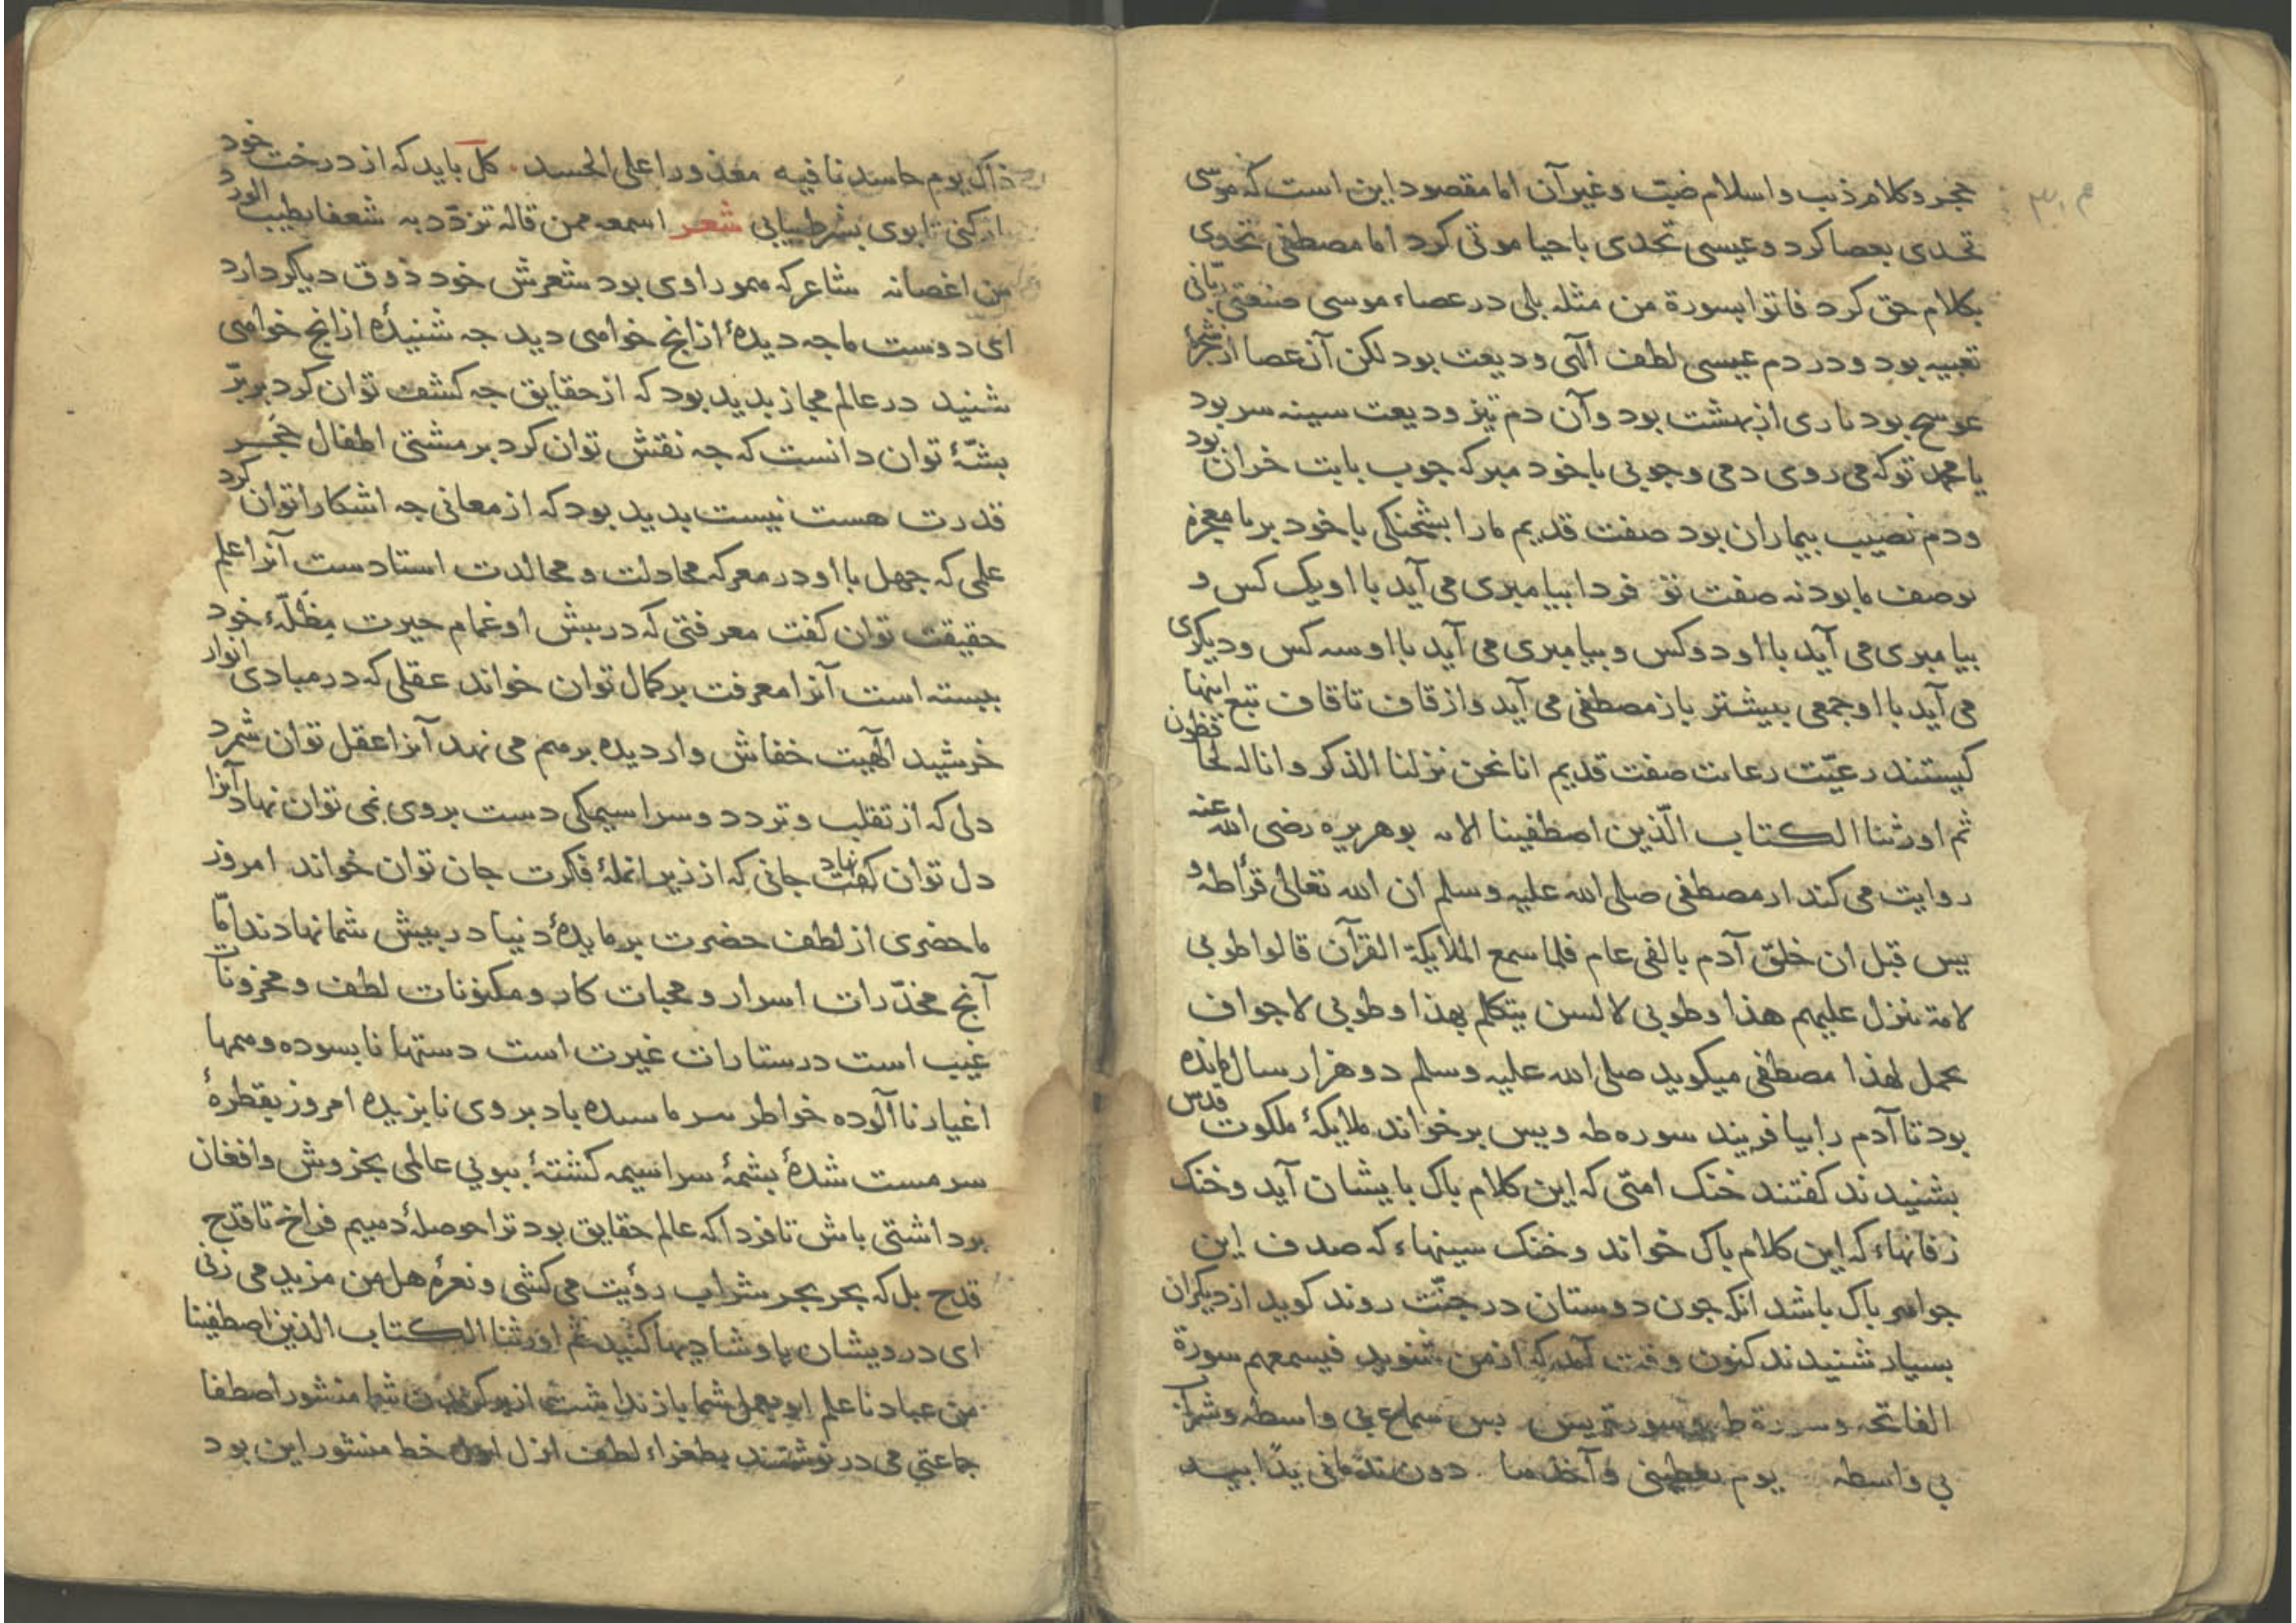 حجر و کلام ذیب و اسلام ضبّ و غیر آن اما مقصود این است که موسی
تحدی بعصا کرد و عیسی تحدی باحیا موتی کرد اما مصطفی تحدی
بکلام حق کرد فاتوا بسورة من مثله بلی در عصاء موسی صنعتی ربّانی
تعبیه بود و در دم عیسی لطف الهی ودیعت بود لکن آن عصا از شجرهٔ
عوسج بود ناری از بهشت بود و آن دم نیز ودیعت سینه سر بود
یا محمد تو که می روی دمی و جوبی با خود مبر که جوب بابت خران بود
و دم نصیب بیماران بود صفت قدیم ما را بشحنکی با خود بر تا معجزهٔ
بوصف ما بود نه صفت تو فردا بیامبری می آید با او یک کس و
بیامبری می آید با او دو کس و بیامبری می آید با او سه کس و دیکری
می آید با او جمعی بیشتر باز مصطفی می آید و از قاف تا قاف تبع اینها
کیستند رعیّت رعات صفت قدیم انا نحن نزلنا الذکر و انا له لحافظون
ثم اورثنا الکتاب الّذین اصطفینا الایه بوهریره رضی الله عنه
روایت می کند از مصطفی صلی الله علیه وسلم ان الله تعالی قرأ طه و
یس قبل ان خلق آدم بالفی عام فلما سمع الملایکة القرآن قالوا طوبی
لامة ننزل علیهم هذا و طوبی لالسن یتکلم بهذا و طوبی لاجواف
یحمل لهذا مصطفی میکوید صلی الله علیه وسلم دو هزار سال مانده
بود تا آدم را بیافریند سوره طه و یس برخواند ملایکهٔ ملکوت قدس
بشنیدند کفتند خنک امتی که این کلام باک بایشان آید و خنک
زفانهاء که این کلام باک خواند و خنک سینهاء که صدف این
جواهر باک باشد انکه جون دوستان در جنّت روند کوید از دیکران
بسیار شنیدند کنون وقت آمد که از من شنوید فیسمعهم سورة
الفاتحه و سورة طه و سورة یس بس سماع بی واسطه و شراب
بی واسطه یوم
ذاک یوم حاسدنا فیه معذورا علی الحسد کل باید که از درخت خود
از کنی تا بوی بشرطیابی شعر اسمعه ممن قاله تزدد به شعفا بطیب الورد
من اغصانه شاعر که همو راوی بود شعرش خود ذوق دیکر دارد
ای دوست ما جه دیدهٔ از انج خواهی دید جه شنیدهٔ از انج خواهی
شنید در عالم مجاز بدید بود که از حقایق جه کشف توان کرد بر برّ
بشّهٔ توان دانست که جه نقش توان کرد بر مشتی اطفال حجر
قدرت هست نیست بدید بود که از معانی جه اشکارا توان کرد
علمی که جهل با او در معرکه مجادلت و مجالدت استادست آنرا علم
حقیقت توان کفت معرفتی که در بیش او غمام حیرت مظلّهٔ خود
ببسته است آنرا معرفت بر کمال توان خواند عقلی که در مبادی انوار
خرشید الهیت خفاش وار دیده بر هم می نهد آنرا عقل توان شمرد
دلی که از تقلب و تردد و سراسیمکی دست بر وی نمی توان نهاد آنرا
دل توان کفت جانی که از زیر انملهٔ فکرت جان توان خواند امروز
ما حضری از لطف حضرت بر مایدهٔ دنیا در بیش شما نهادند امّا
آنج مخدّرات اسرار و محبات کار و مکنونات لطف و مخزونات
غیب است در ستارات غیرت است دستها نابسوده و همها
اغیار ناآلوده خواطر باد بر وی نابزیده امروز بقطرهٔ
سرمست شدهٔ بشمهٔ سراسیمه کشتهٔ ببویی عالمی بخروش و افغان
برداشتی باش تا فردا که عالم حقایق بود ترا حوصلهٔ دهیم فراخ تا قدح
قدح بل که بحر بحر شراب رؤیت می کشی و نعرهٔ هل من مزید می زنی
ای درویشان شادیها کنید ثم اورثنا الکتاب الذین اصطفینا
من عبادنا علم شما باز نداشت شما منشور اصطفا
جماعتی می در نوشتند بطغراء لطف ازل خط منشور این بود